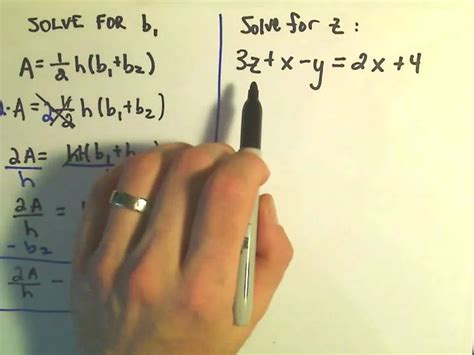 SOLVE FOR b₁
A = 1/2 h(b₁+b₂)
2·A = 2·1/2 h(b₁+b₂)
2A/h = h(b₁+b
2A/h =
- b₂
2A/h -
Solve for z :
3z + x - y = 2x + 4